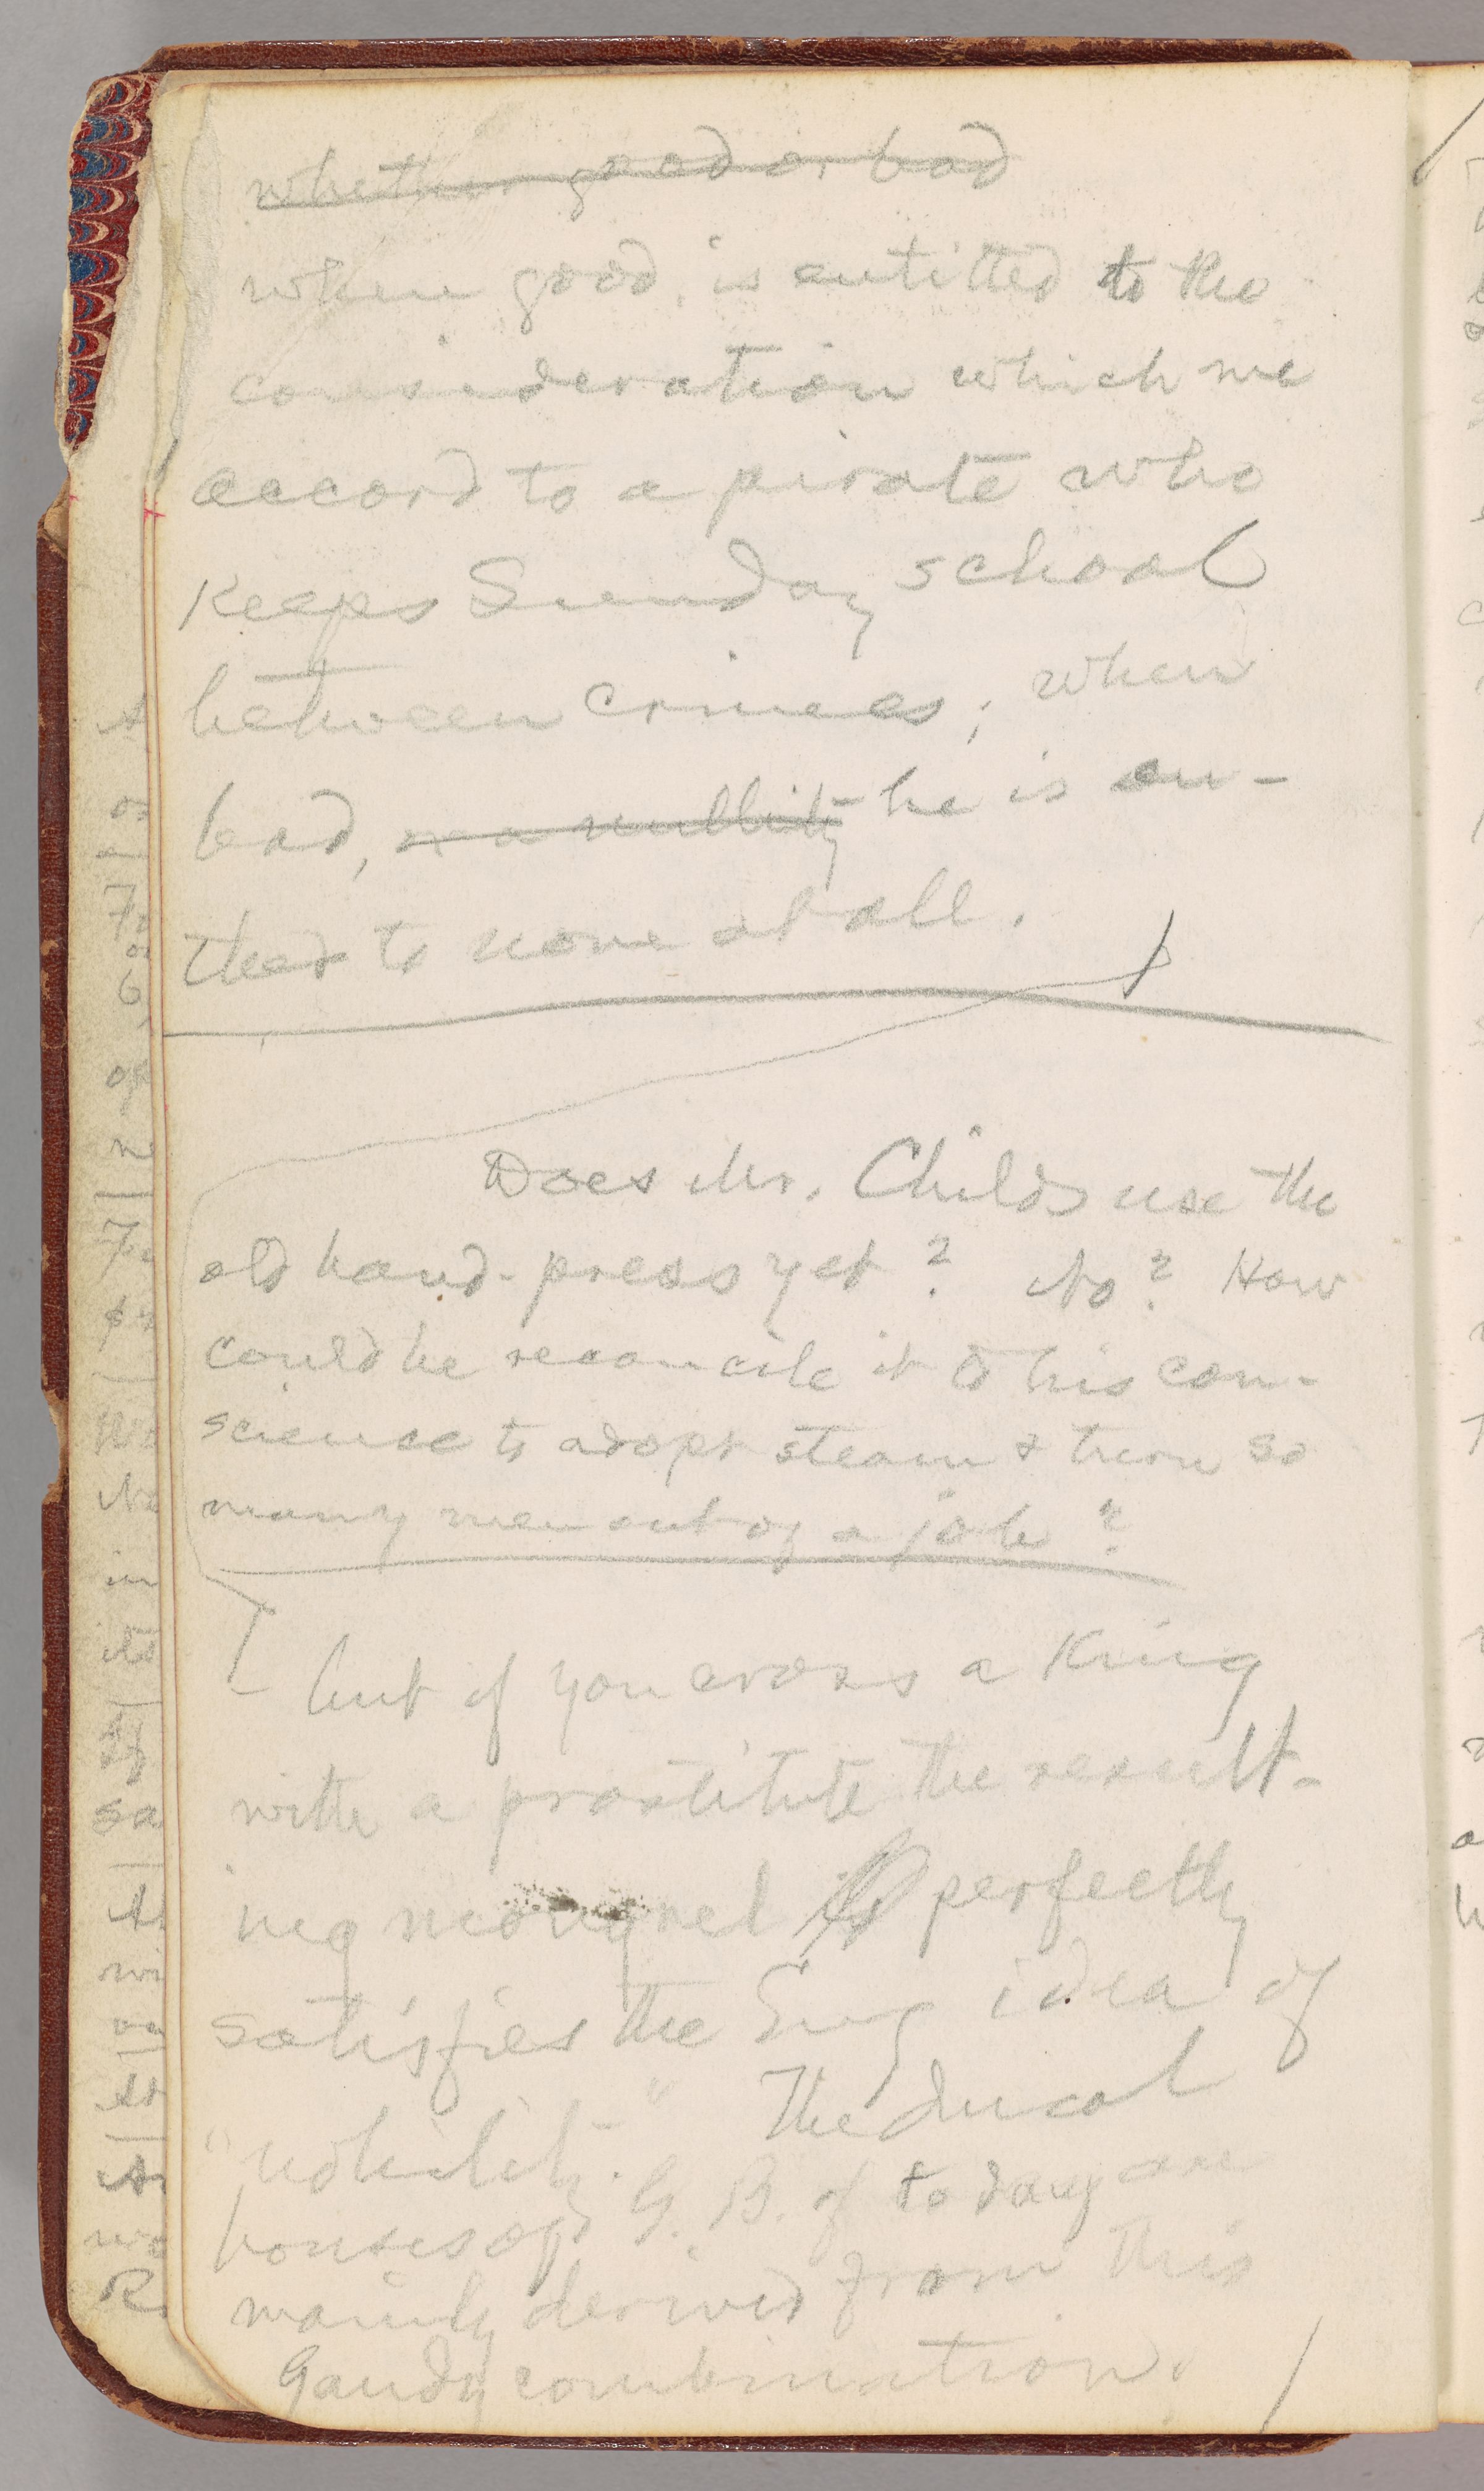 whether good or bad
when good, is entitled to the
consideration which we
accord to a pirate who
keeps Sunday school
between crimes; when
bad, a nullity he is en-
titled to none at all.
Does Mr. Childs use the
old hand-press yet? No? How
could he reconcile it to his con-
science to adopt steam & turn so
many men out of a job?
but if you cross a King
with a prostitute the result-
ing mongrel is perfectly
satisfies the Eng idea of
"nobility." The ducal
houses of G. B. of to day are
mainly derived from this
Gaudy combination.